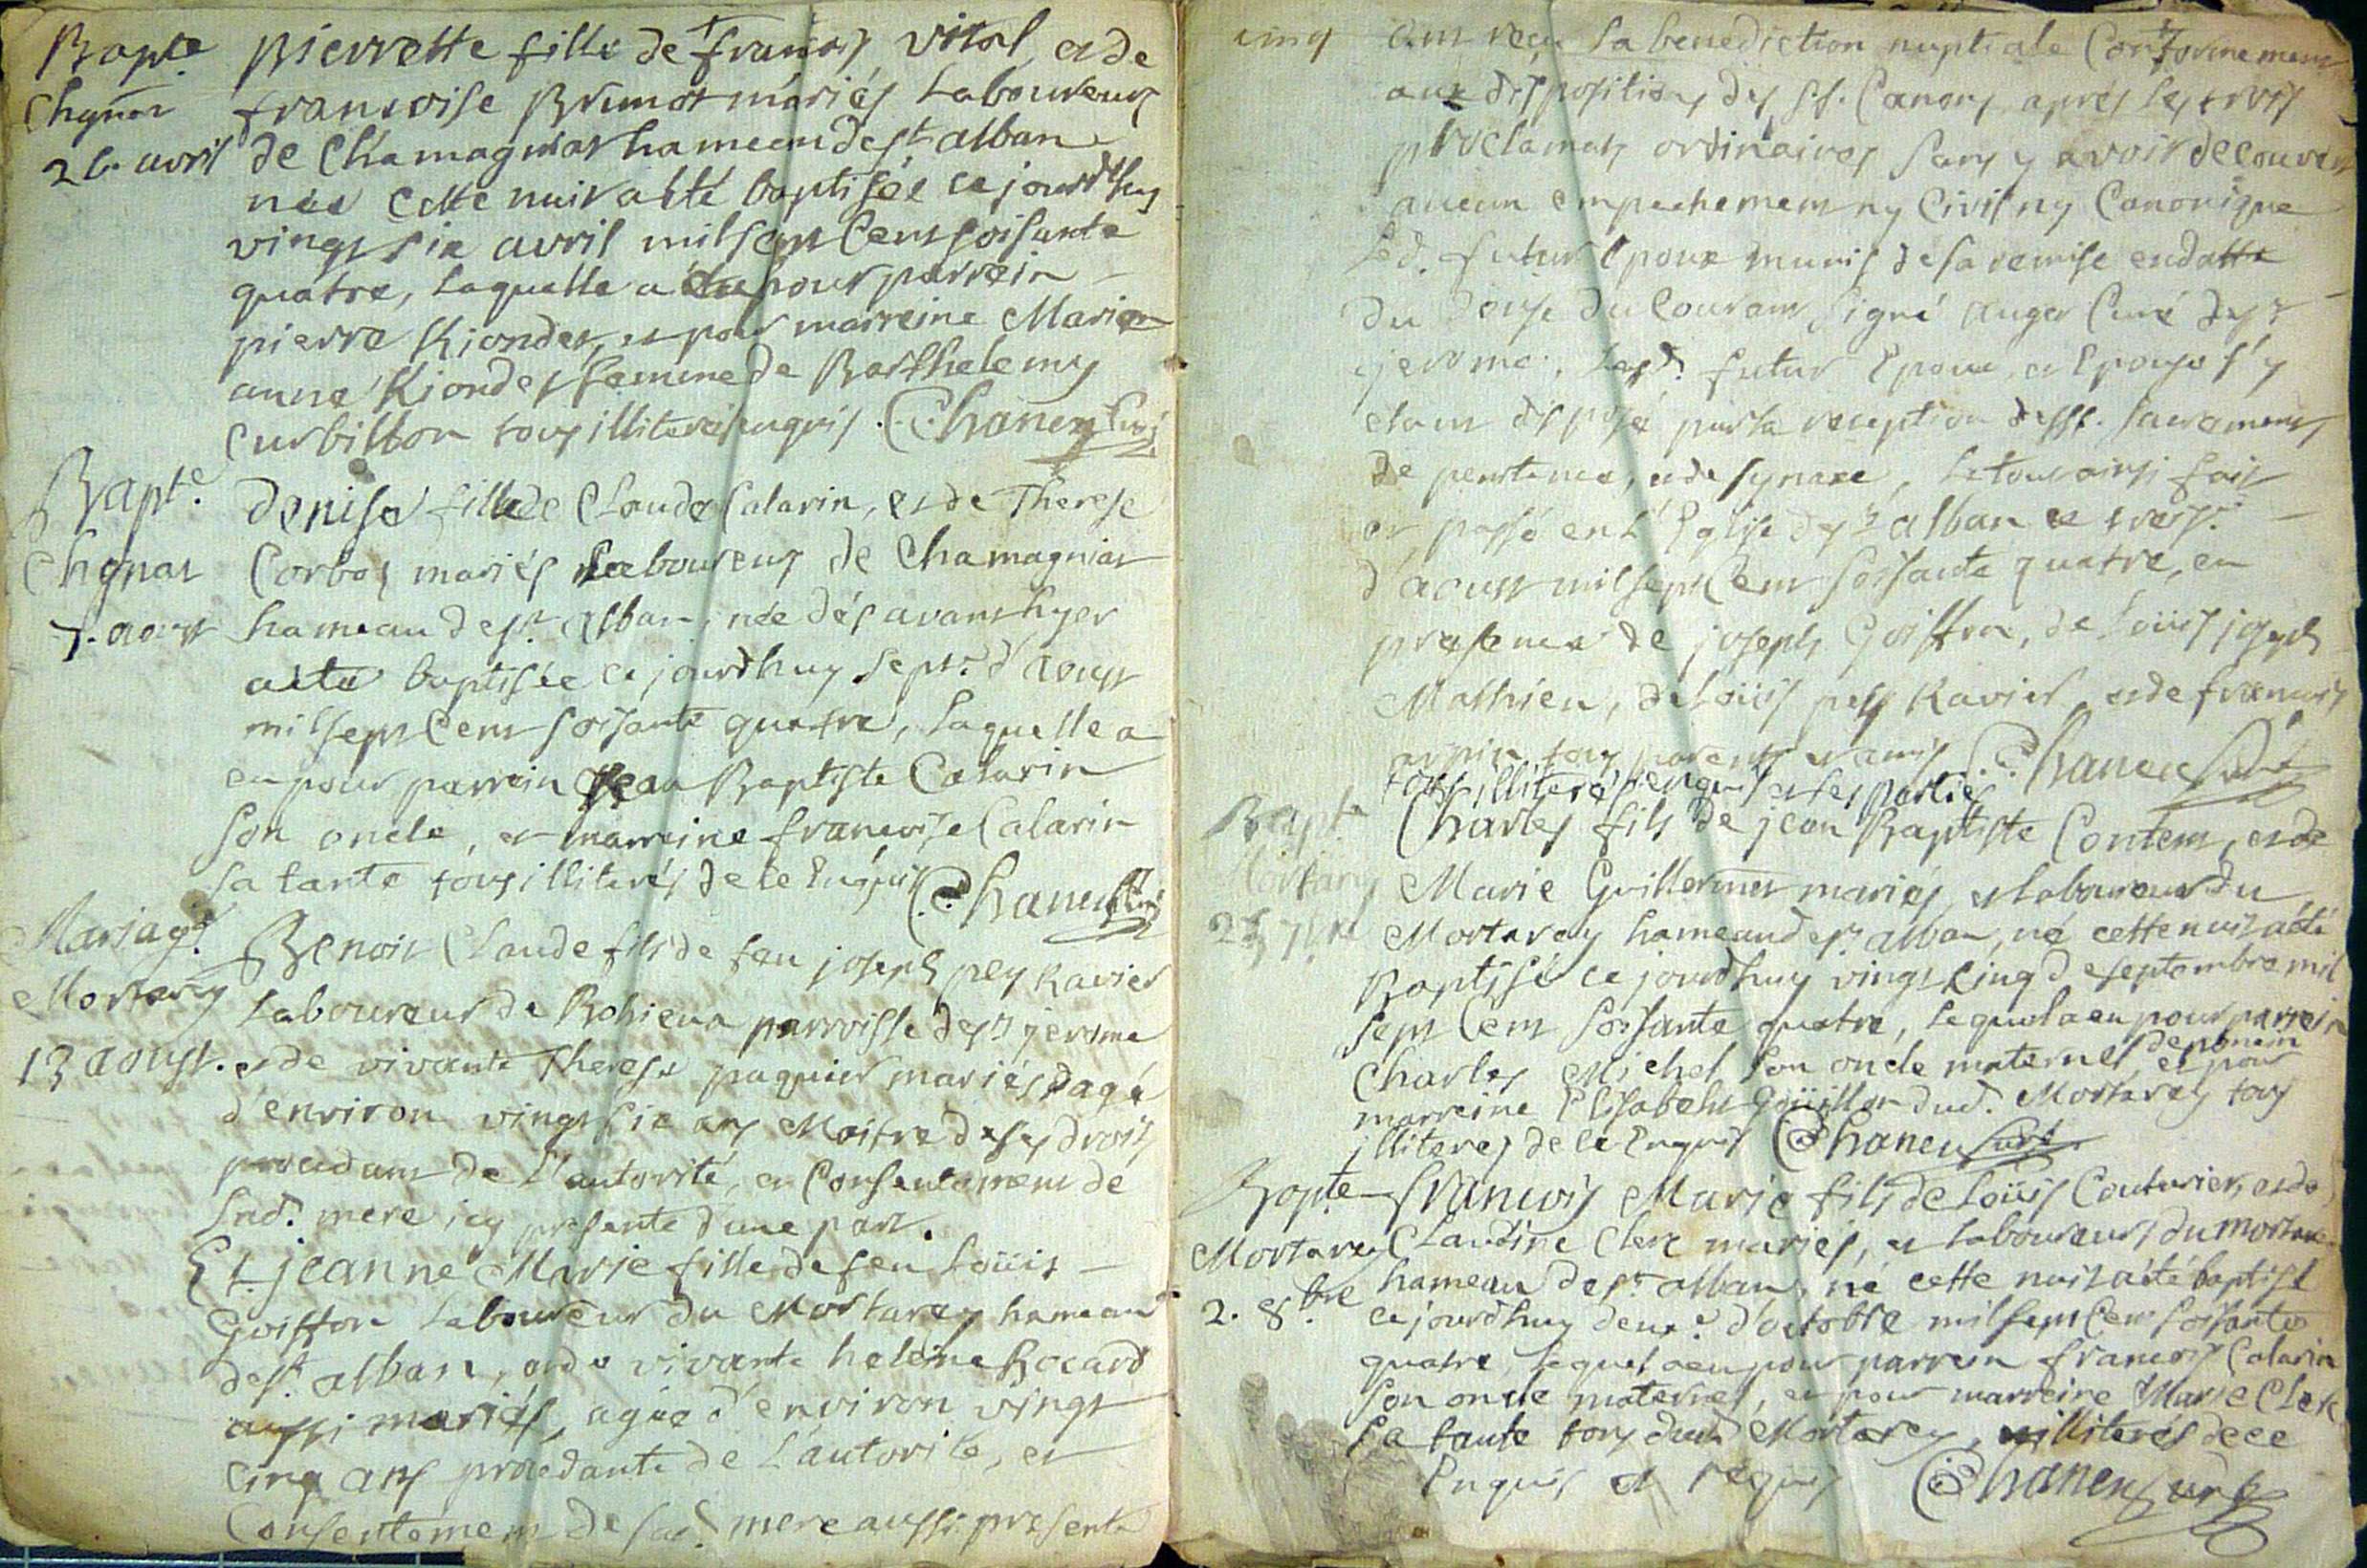 Bapte pierrette fille de francois vital, et de
Chgnar francoise Brunot mariés Laboureurs
26. avril de Chamagniat hameau de st alban
née cette nuit a été baptisée ce jourdhuy
vingt six avril mil sept Cent soisante
quatre, Laquelle a eu pour parrein
pierre Riondet, et pour marreine Marie
anne Riondet femme de Barthelemy
Curbillon tous illiterés enquis. Chanen Curé
Bapte. Denise fille de Claude Calarin, et de Therese
Chgnat Corbot mariés Laboureurs de Chamagniat
7. aoust hameau de st. alban, née dés avant hyer
a été baptisée ce jourdhuy sept.e d'aoust
mil sept Cent soisante quatre, Laquelle a
eu pour parrein Jean Baptiste Calarin
son oncle, et marreine francoise Calarin
sa tante tous illiterés de ce Enquis Chanen Curé
Mariage. Benoit Claude fils de feu joseph pey Ravier
Mortarey Laboureur de Bohiena parroisse de st jerome
13 aoust. et de vivante Therese paquier mariés agé
d'environ vingt six ans Maitre de ses droits
procedant de L'autorité, et Consentement de
sad. mere icy presente d'une part.
Et jeanne Marie fille de feu Loüis
Goiffon Laboureur du Mortarey hameau
de st. alban, et de vivante heleine Bocard
aussi mariés, agée d'environ vingt
cinq ans procedante de L'autorité, et
Consentement de sad. mere aussi presente
ont reçu La benediction nuptiale Conformement
aux dispositions des sts. Canons, aprés Les trois
proclamats ordinaires sans y avoir decouvert
aucun empechement ny Civil ny Canonique
Led. futur Epoux munis de sa remise en datte
du douze du Courant signé auger Curé de st
jerome. Lesd. futur Epoux, et Epouse s'y
etant disposé par La reception des sts. sacrements
de penitence, et de synaxe, Le tout ainsi fait
et passé en L'Eglise de st alban ce treize
d'aoust mil sept Cent soisante quatre, en
presence de joseph Goiffon, de Loüis joseph
Mathieu, de Loüis pey Ravier, et de francois
arpin tous parents et amis Chanen Curé
tous illiterés enquis et les parties
Bapte Charles fils de jean Baptiste Contem, et de
Mortarey Marie Guillermet mariés, et Laboureur du
25 7bre Mortarey hameau de st alban, né cette nuit a été
Baptisé ce jourdhuy vingt cinq de septembre mil
sept Cent soisante quatre, Lequel a eu pour parrein
Charles Michel son oncle maternel, et pour
marreine Elisabeth Goüillon dud. Mortarey tous
illiteres de ce Enquis Chanen Curé
Bapte francois Marie fils de Loüis Couturier, et de
Mortarey Claudine Clerc mariés, et Laboureurs du mortarey
2. 8.bre hameau de st alban, né cette nuit a été baptisé
ce jourdhuy deux.e d'octobre mil sept Cent soisante
quatre, Lequel a eu pour parrein francois Calarin
son oncle maternel, et pour marreine Marie Clerc
sa tante tous dud. Mortarey, illiterés de ce
Enquis et requis Chanen Curé